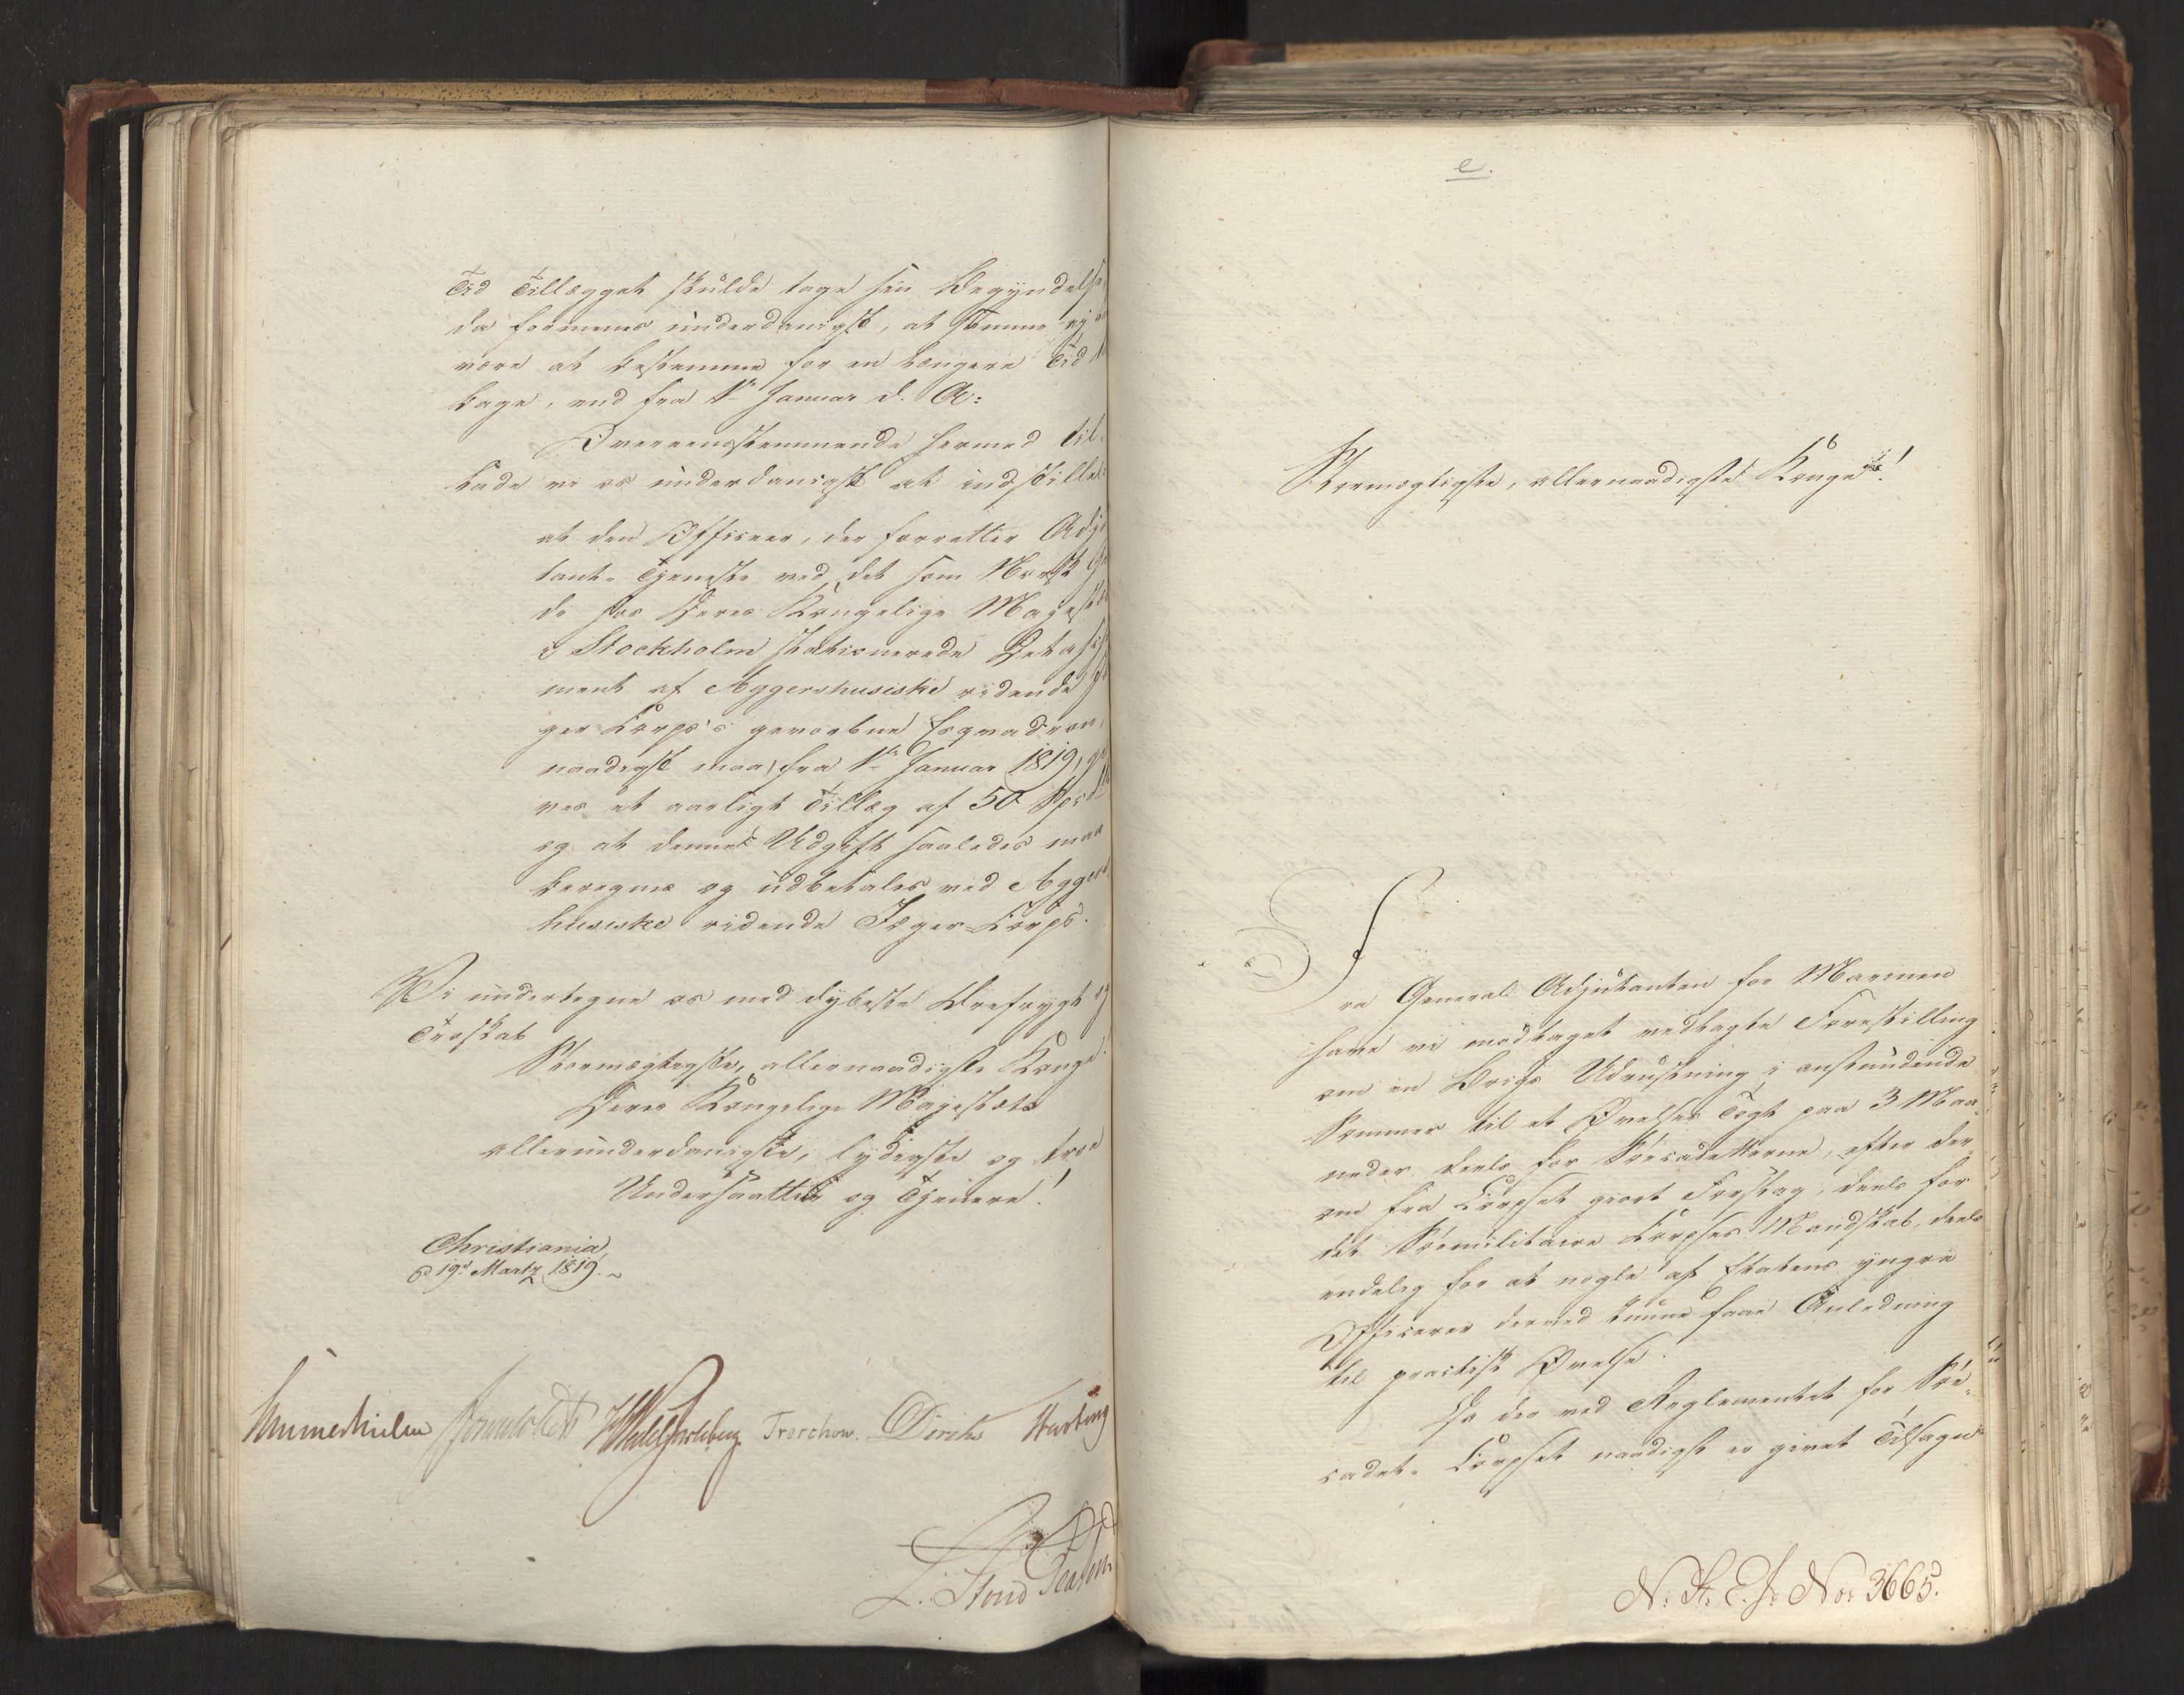 Tid Tillægget skulde tage sin Begyndelse
da formenes underdanigst, at samme ej
være at bestemme for en længere Tid til-
bage, end fra 1ste Januar d. A:
Overeensstemmende hermed til-
lade vi os underdanigst at indstille:
at den Officeer, der forretter Adju-
tant-Tjeneste ved det som Norsk Gar-
de hos Deres Kongelige Majestæt
i Stockholm stationerede Detasche-
ment af Aggershusiske ridende Jæ-
ger Corps's gevorbne Esqvadron,
naadigst maa, fra 1ste Januar 1819, gi-
ves et aarligt Tillæg af 50 Spd
og at denne Udgift saaledes maa
beregnes og udbetales ved Aggers-
husiske ridende Jæger-Corps.
Vi undertegne os med dybeste Ærefrygt og
Troskab
Stormægtigste, allernaadigste Konge!
Deres Kongelige Majestæts
allerunderdanigste, lydigste og troe
Undersaatter og Tjenere!
Christiania,
d 19d Martz 1819.
Sommerhielm HWedel Jarlsberg Treschow. Diriks
e.
Stormægtigste, allernaadigste Konge!
Fra General-Adjutanten for Marinen
have vi modtaget vedlagte Forestilling
om en Brigs Udrustning i anstundende
Sommer til et Øvelses Togt paa 3 Maa-
neder deels for Søecadetterne, efter der-
om fra Corpset giort Forslag, deels for
det Søemilitaire Corpses Mandskab, deels
endelig for at nogle af Etatens yngre
Officerer derved kunne faae Anledning
til practisk Øvelse.
Da der ved Reglementet for Søe-
cadet-Corpset naadigst er givet Tilsagn
N: St: E. J: No: 3665.